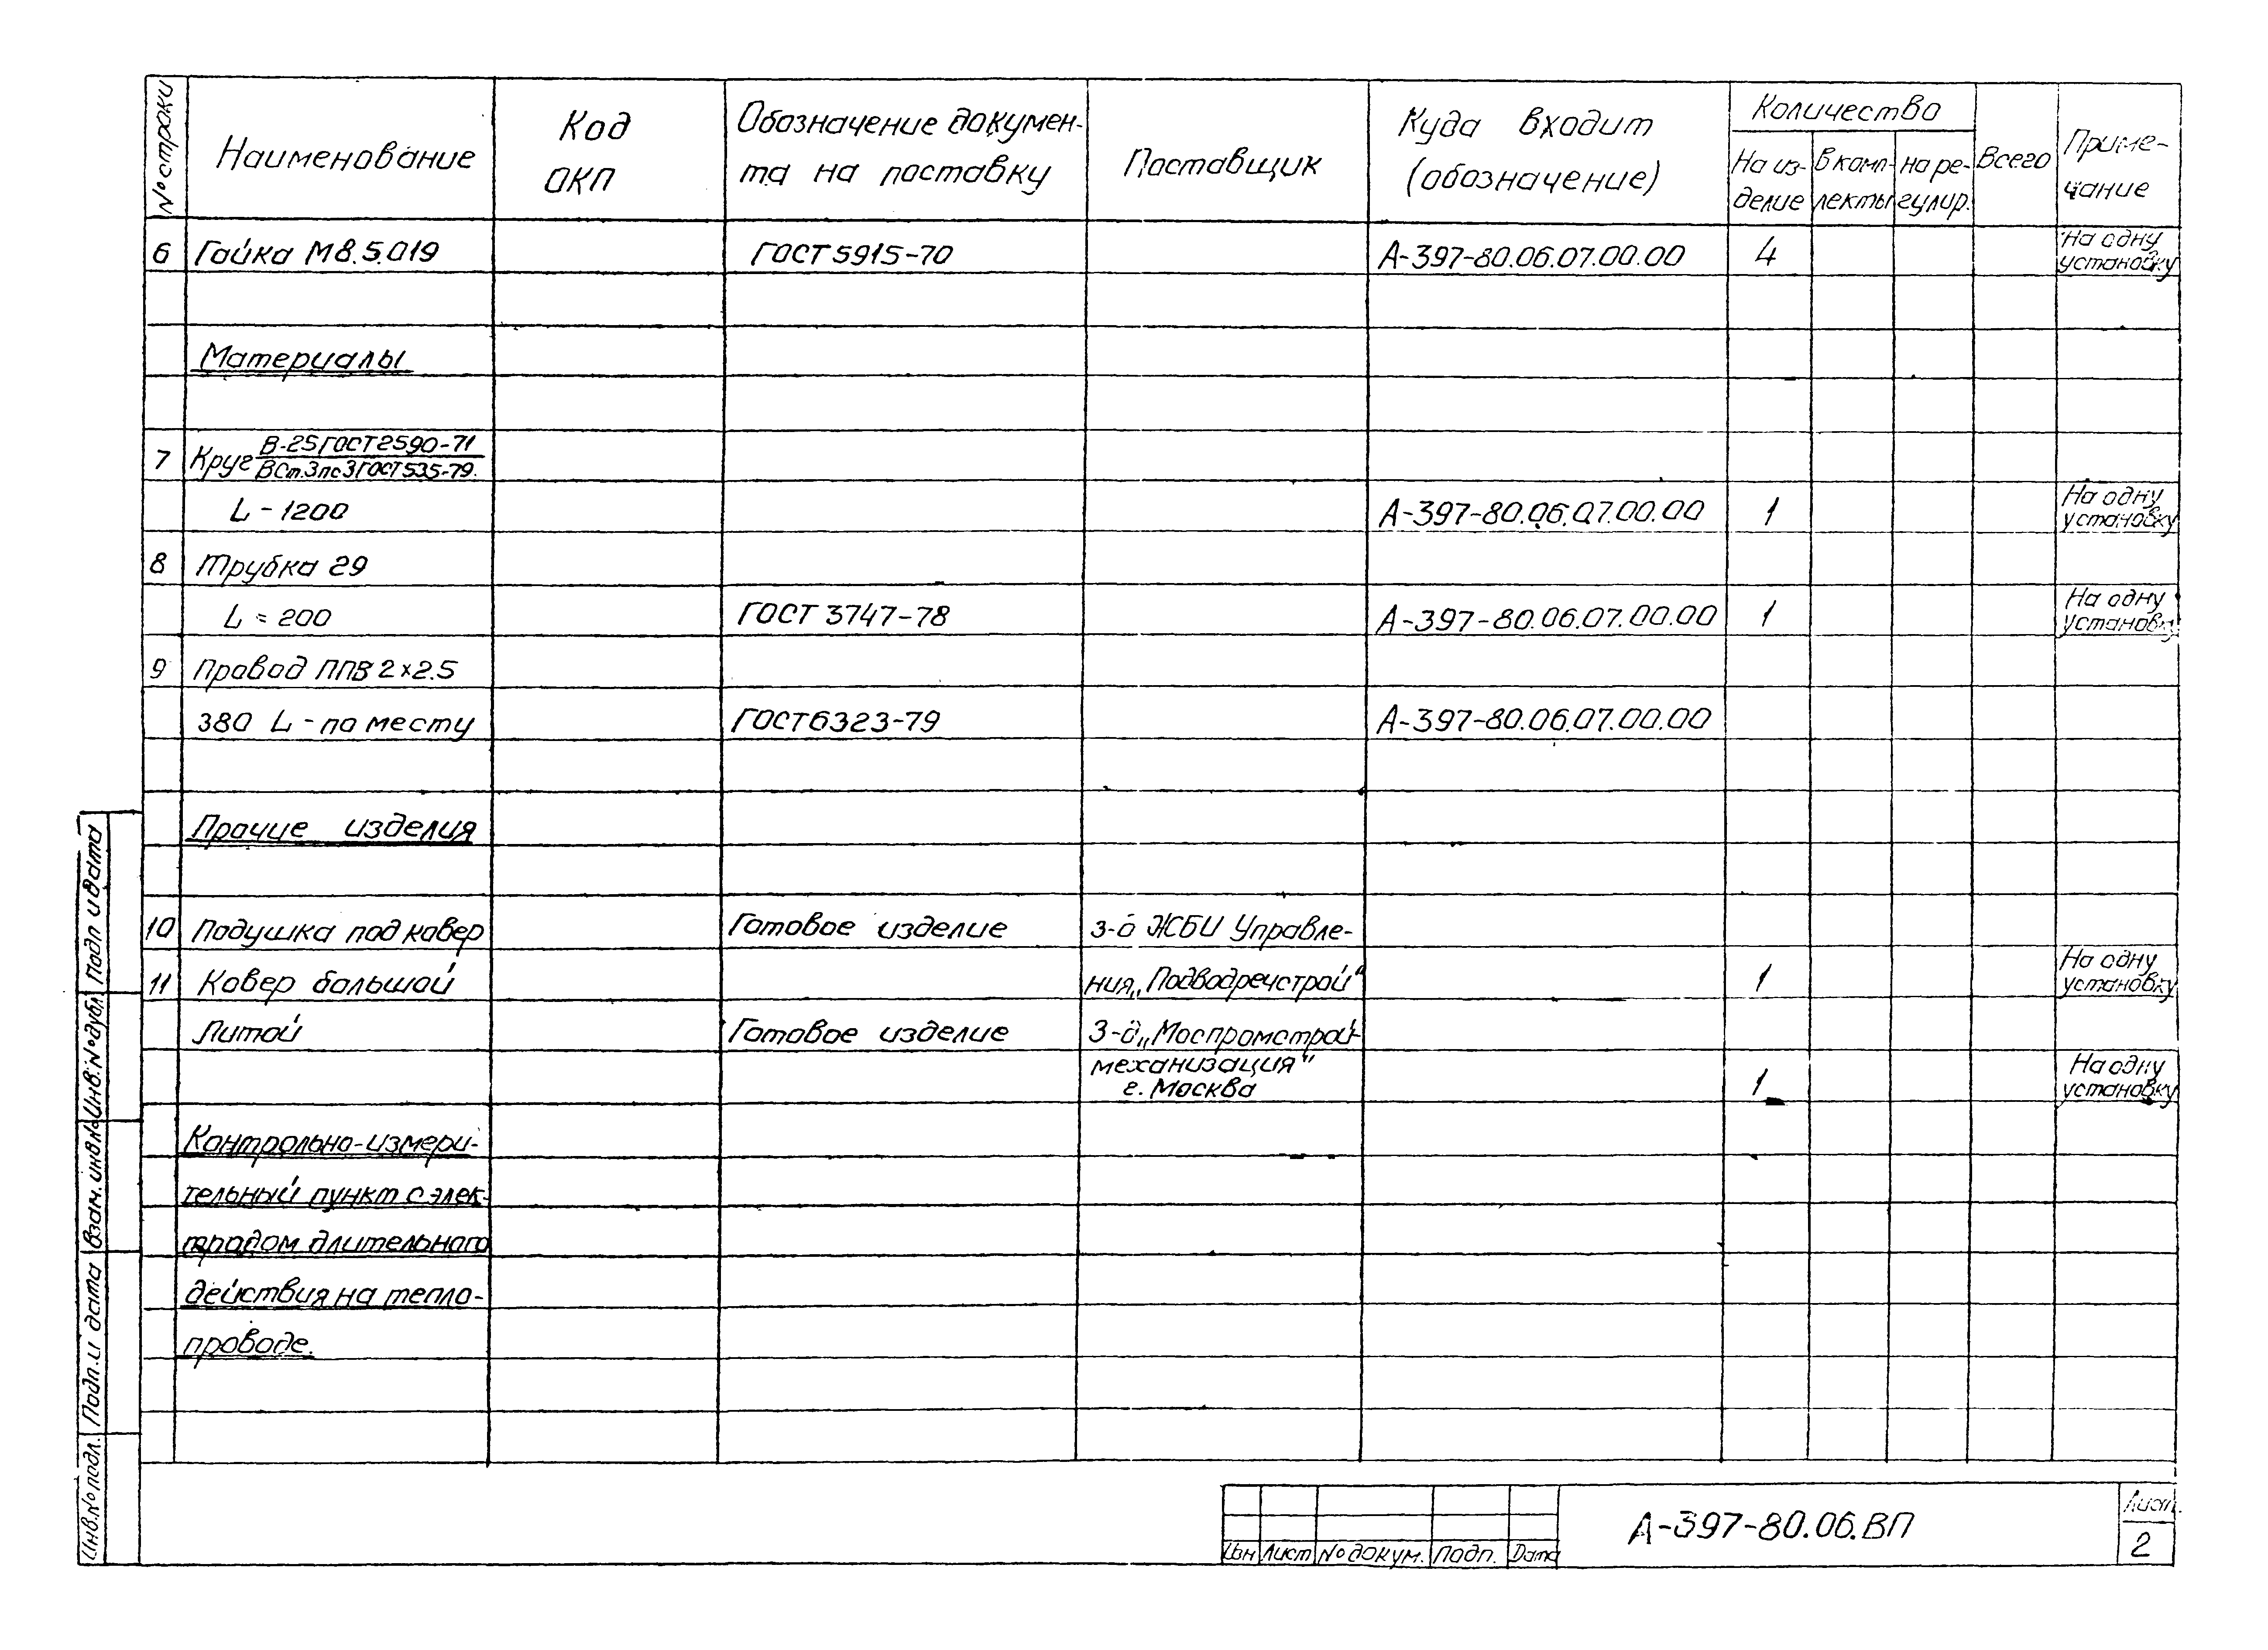 № строки
Наименование
Код
ОКП
Обозначение докумен-
та на поставку
Поставщик
Куда входит
(обозначение)
Количество
На из-
делие
В комп-
лекты
на ре-
гулир.
Всего
Приме-
чание
6 Гайка М8.5.019 ГОСТ 5915-70 А-397-80.06.07.00.00 4 На одну
установку
Материалы
7 Круг В-25 ГОСТ 2590-71
ВСт.3пс3 ГОСТ 535-79.
L - 1200 А-397-80.06.07.00.00 1 На одну
установку
8 Трубка 29
L = 200 ГОСТ 3747-78 А-397-80.06.07.00.00 1 На одну
установку
9 Провод ППВ 2×2.5
380 L - по месту ГОСТ 6323-79 А-397-80.06.07.00.00
Прочие изделия
10 Подушка под ковер Готовое изделие з-д ЖБИ Управле-
11 Ковер большой ния „Подводречстрой" 1 На одну
установку
Литой Готовое изделие З-д „Моспромстрой-
механизация"
г. Москва 1 На одну
установку
Контрольно-измери-
тельный пункт с элек-
тродом длительного
действия на тепло-
проводе.
Инв.№ подл. Подп. и дата Взам. инв.№ Инв.№ дубл. Подп и дата
Лист № докум. Подп. Дата
А-397-80.06.ВП
Лист.
2